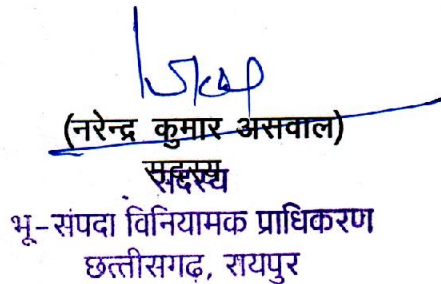 (नरेन्द्र कुमार असवाल)
सदस्य
सदस्य
भू-संपदा विनियामक प्राधिकरण
छत्तीसगढ़, रायपुर